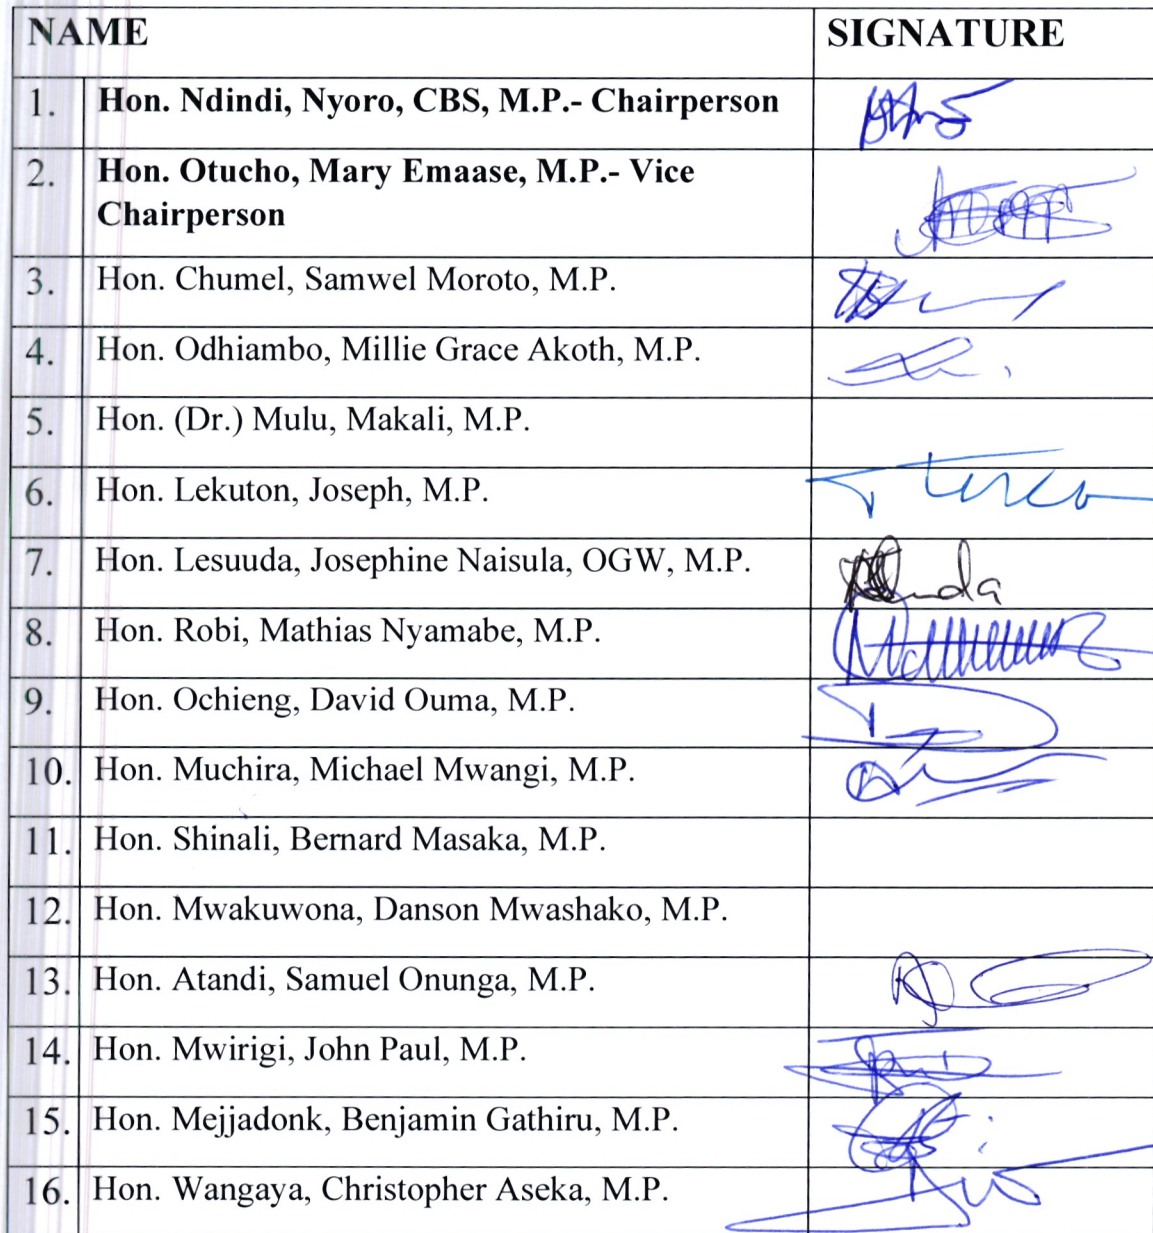 NAME SIGNATURE
1. Hon. Ndindi, Nyoro, CBS, M.P.- Chairperson
2. Hon. Otucho, Mary Emaase, M.P.- Vice
Chairperson
3. Hon. Chumel, Samwel Moroto, M.P.
4. Hon. Odhiambo, Millie Grace Akoth, M.P.
5. Hon. (Dr.) Mulu, Makali, M.P.
6. Hon. Lekuton, Joseph, M.P.
7. Hon. Lesuuda, Josephine Naisula, OGW, M.P.
8. Hon. Robi, Mathias Nyamabe, M.P.
9. Hon. Ochieng, David Ouma, M.P.
10. Hon. Muchira, Michael Mwangi, M.P.
11. Hon. Shinali, Bernard Masaka, M.P.
12. Hon. Mwakuwona, Danson Mwashako, M.P.
13. Hon. Atandi, Samuel Onunga, M.P.
14. Hon. Mwirigi, John Paul, M.P.
15. Hon. Mejjadonk, Benjamin Gathiru, M.P.
16. Hon. Wangaya, Christopher Aseka, M.P.